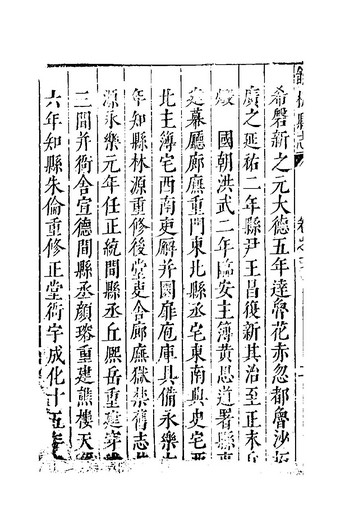 縣志 卷之 二
希磬新之元大德五年達魯花赤忽都魯沙
廣之延祐二年縣尹王昌後新其治至正末
燬 國朝洪武二年臨安主簿黃思道署縣
建幕廳廊廡重門東北縣丞宅東南典史宅西
北主簿宅西南吏廨并圊扉庖庫具備永樂
年知縣林源重修後堂吏舍廊廡獄禁舊志
源永樂元年任正統間縣丞丘熈岳重建穿
三間并衙舍宣德間縣丞顏璿重建譙樓天
六年知縣朱倫重修正堂衙宇成化十五年